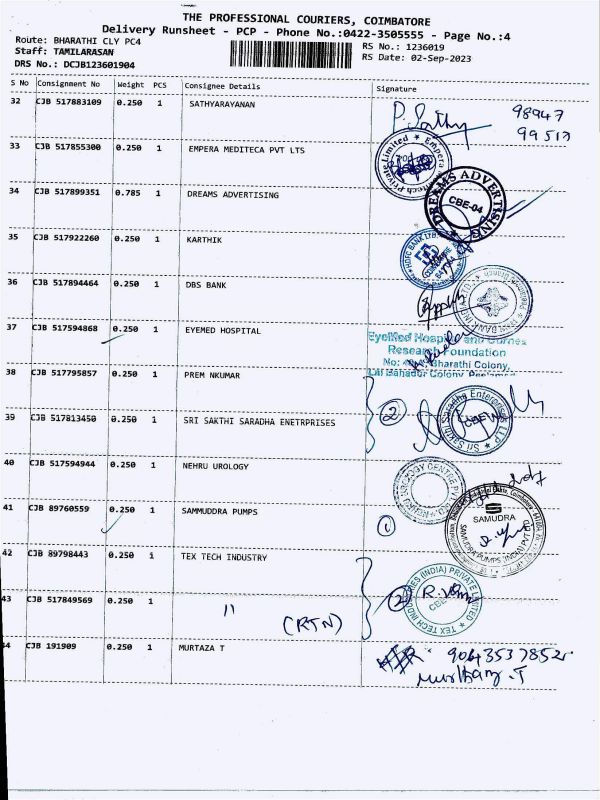 THE PROFESSIONAL COURIERS, COIMBATORE
Delivery Runsheet - PCP - Phone No.:0422-3505555 - Page No.:4
Route: BHARATHI CLY PC4
RS No.: 1236019
Staff: TAMILARASAN
RS Date: 02-Sep-2023
DRS No.: DCJB123601904
S No Consignment No Weight PCS Consignee Details Signature
32 CJB 517883109 0.250 1 SATHYARAYANAN P. Sathy 98947
99513
33 CJB 517855300 0.250 1 EMPERA MEDITECA PVT LTS
34 CJB 517899351 0.785 1 DREAMS ADVERTISING DREAMS ADVERTISING CBE-04
35 CJB 517922260 0.250 1 KARTHIK
36 CJB 517894464 0.250 1 DBS BANK
37 CJB 517594868 0.250 1 EYEMED HOSPITAL
Research Foundation
Bharathi Colony,
38 CJB 517795857 0.250 1 PREM NKUMAR
2
39 CJB 517813450 0.250 1 SRI SAKTHI SARADHA ENETRPRISES Sri Sakthi Saradha Enterprises LLP
40 CJB 517594944 0.250 1 NEHRU UROLOGY
41 CJB 89760559 0.250 1 SAMMUDDRA PUMPS
1
SAMUDRA
SAMUDRA PUMPS (INDIA) PVT LTD
42 CJB 89798443 0.250 1 TEX TECH INDUSTRY
2
TEX TECH INDUSTRIES (INDIA) PRIVATE LIMITED
43 CJB 517849569 0.250 1 " (RTN)
44 CJB 191909 0.250 1 MURTAZA T